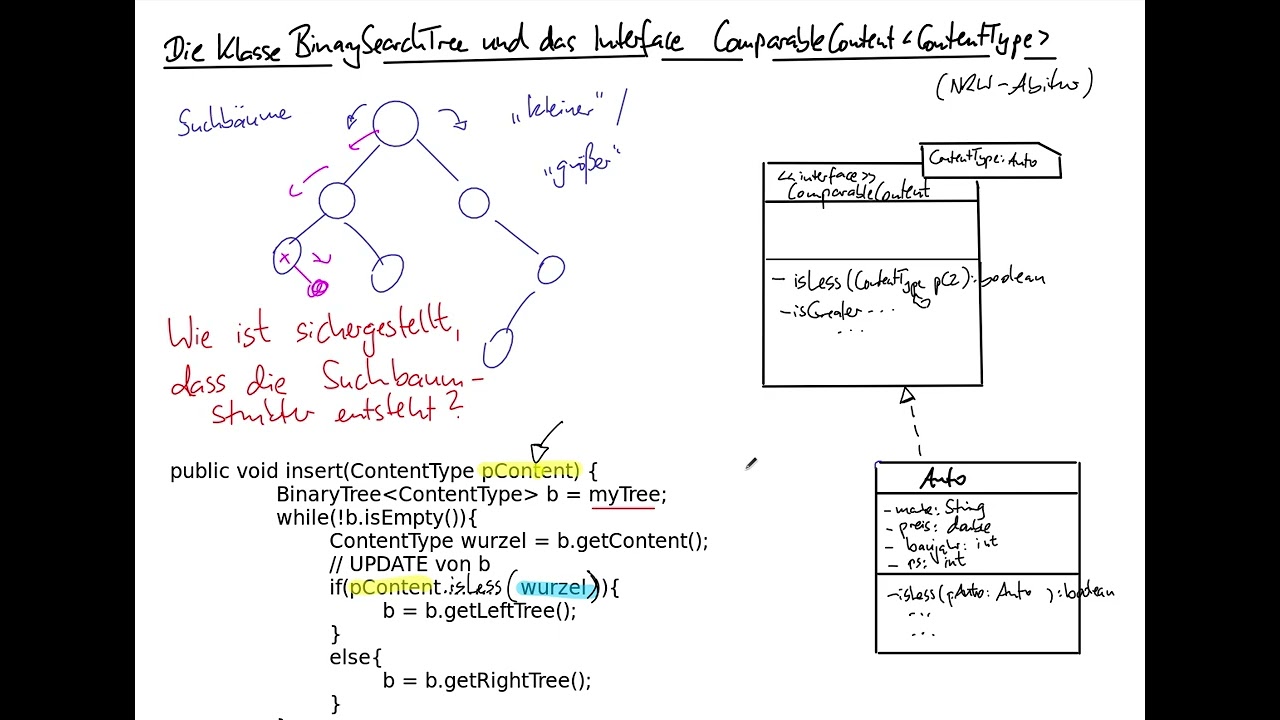 Die Klasse BinarySearchTree und das Interface ComparableContent<ContentType>
(NRW-Abitur)
Suchbäume
"kleiner" /
"größer"
ContentType: Auto
<<interface>>
ComparableContent
- isLess(ContentType pC2): boolean
- isGreater ...
...
Wie ist sichergestellt,
dass die Suchbaum-
struktur entsteht?
Auto
- marke: String
- preis: double
- baujahr: int
- ps: int
- isLess(pAuto: Auto ): boolean
...
...
public void insert(ContentType pContent) {
BinaryTree<ContentType> b = myTree;
while(!b.isEmpty()){
ContentType wurzel = b.getContent();
// UPDATE von b
if(pContent.isLess(wurzel)){
b = b.getLeftTree();
}
else{
b = b.getRightTree();
}